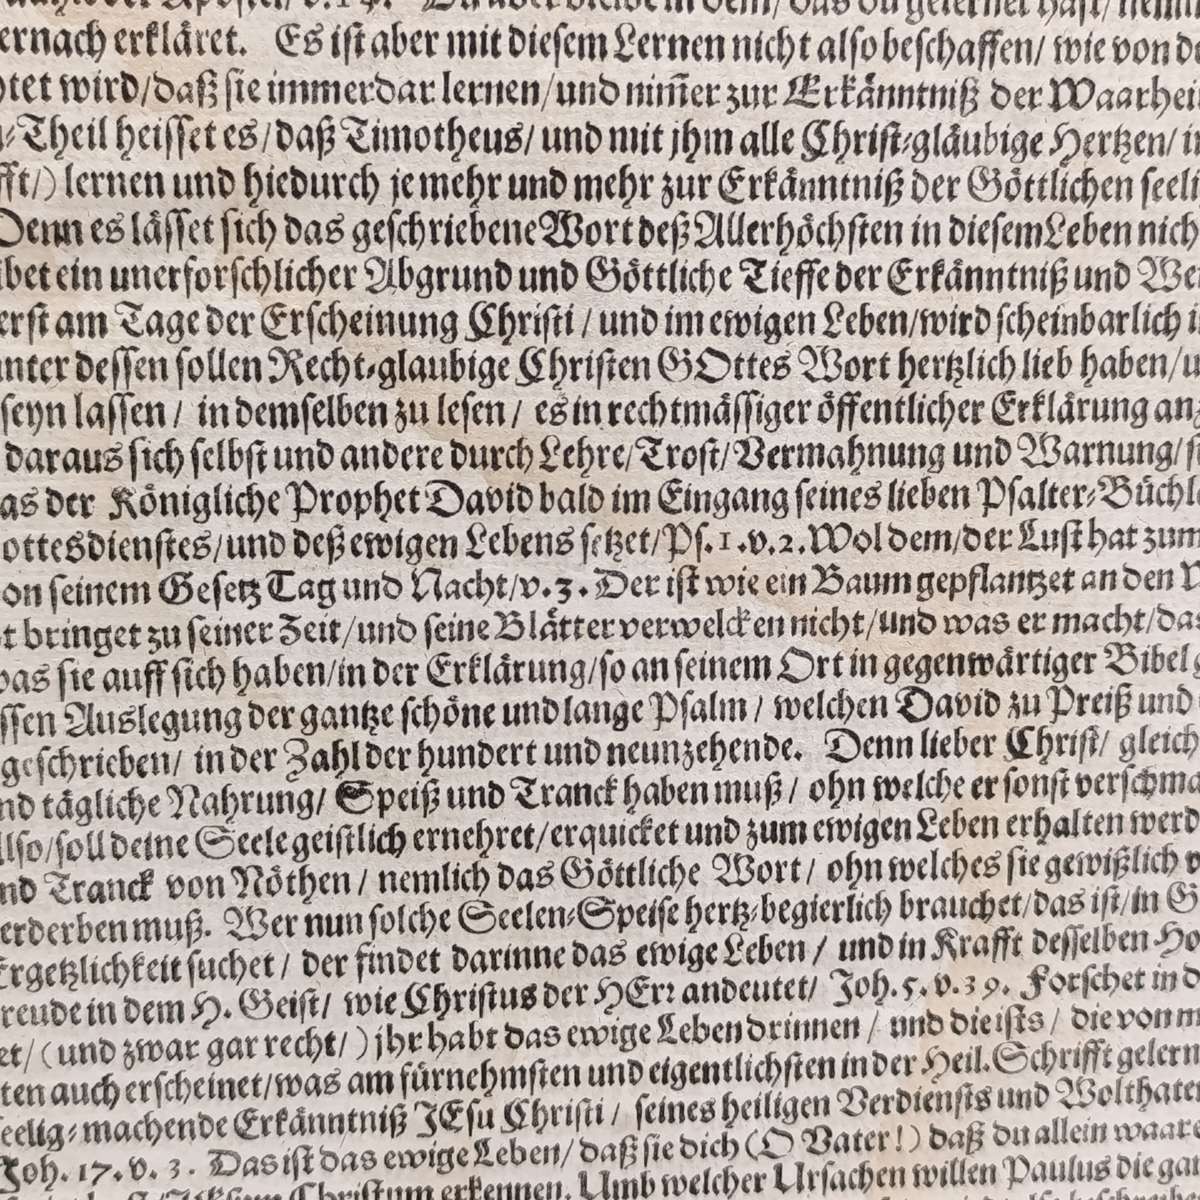 der Apostel/ v. 14. Du aber bleibe in dem/ das du gelernet hast/
ernach erkläret. Es ist aber mit diesem Lernen nicht also beschaffen/ wie von
tet wird/ daß sie immerdar lernen/ und nim̃er zur Erkänntniß der Waarhei
Theil heisset es/ daß Timotheus/ und mit jhm alle Christ-gläubige Hertzen/
fft/) lernen und hiedurch je mehr und mehr zur Erkänntniß der Göttlichen seeli
Denn es lässet sich das geschriebene Wort deß Allerhöchsten in diesem Leben nich
ibet ein unerforschlicher Abgrund und Göttliche Tieffe der Erkänntniß und We
erst am Tage der Erscheinung Christi/ und im ewigen Leben/ wird scheinbarlich
unter dessen sollen Recht-glaubige Christen GOttes Wort hertzlich lieb haben/
seyn lassen/ in demselben zu lesen/ es in rechtmässiger öffentlicher Erklärung an
daraus sich selbst und andere durch Lehre/ Trost/ Vermahnung und Warnung/
as der Königliche Prophet David bald im Eingang seines lieben Psalter-Büchl
ottesdienstes/ und deß ewigen Lebens setzet/ Ps. 1. v. 2. Wol dem/ der Lust hat zum
on seinem Gesetz Tag und Nacht/ v. 3. Der ist wie ein Baum gepflantzet an den
t bringet zu seiner Zeit/ und seine Blätter verwelcken nicht/ und was er macht/ das
was sie auff sich haben/ in der Erklärung/ so an seinem Ort in gegenwärtiger Bibel
ssen Auslegung der gantze schöne und lange Psalm/ welchen David zu Preiß und
geschrieben/ in der Zahl der hundert und neunzehende. Denn lieber Christ/ gleich
nd tägliche Nahrung/ Speiß und Tranck haben muß/ ohn welche er sonst verschma
llso/ soll deine Seele geistlich ernehret/ erquicket und zum ewigen Leben erhalten werd
nd Tranck von Nöthen/ nemlich das Göttliche Wort/ ohn welches sie gewißlich
erderben muß. Wer nun solche Seelen-Speise hertz-begierlich brauchet/ das ist/ in G
Ergetzlichkeit suchet/ der findet darinne das ewige Leben/ und in Krafft desselben Ho
reude in dem H. Geist/ wie Christus der HErr andeutet/ Joh. 5. v. 39. Forschet in d
et/ (und zwar gar recht/) jhr habt das ewige Leben drinnen/ und die ists/ die von m
ten auch erscheinet/ was am fürnehmsten und eigentlichsten in der Heil. Schrifft gelern
eelig-machende Erkänntniß JEsu Christi/ seines heiligen Verdiensts und Wolthaten
Joh. 17. v. 3. Das ist das ewige Leben/ daß sie dich (O Vater!) daß du allein waare
Christum erkennen. Umb welcher Ursachen willen Paulus die gan